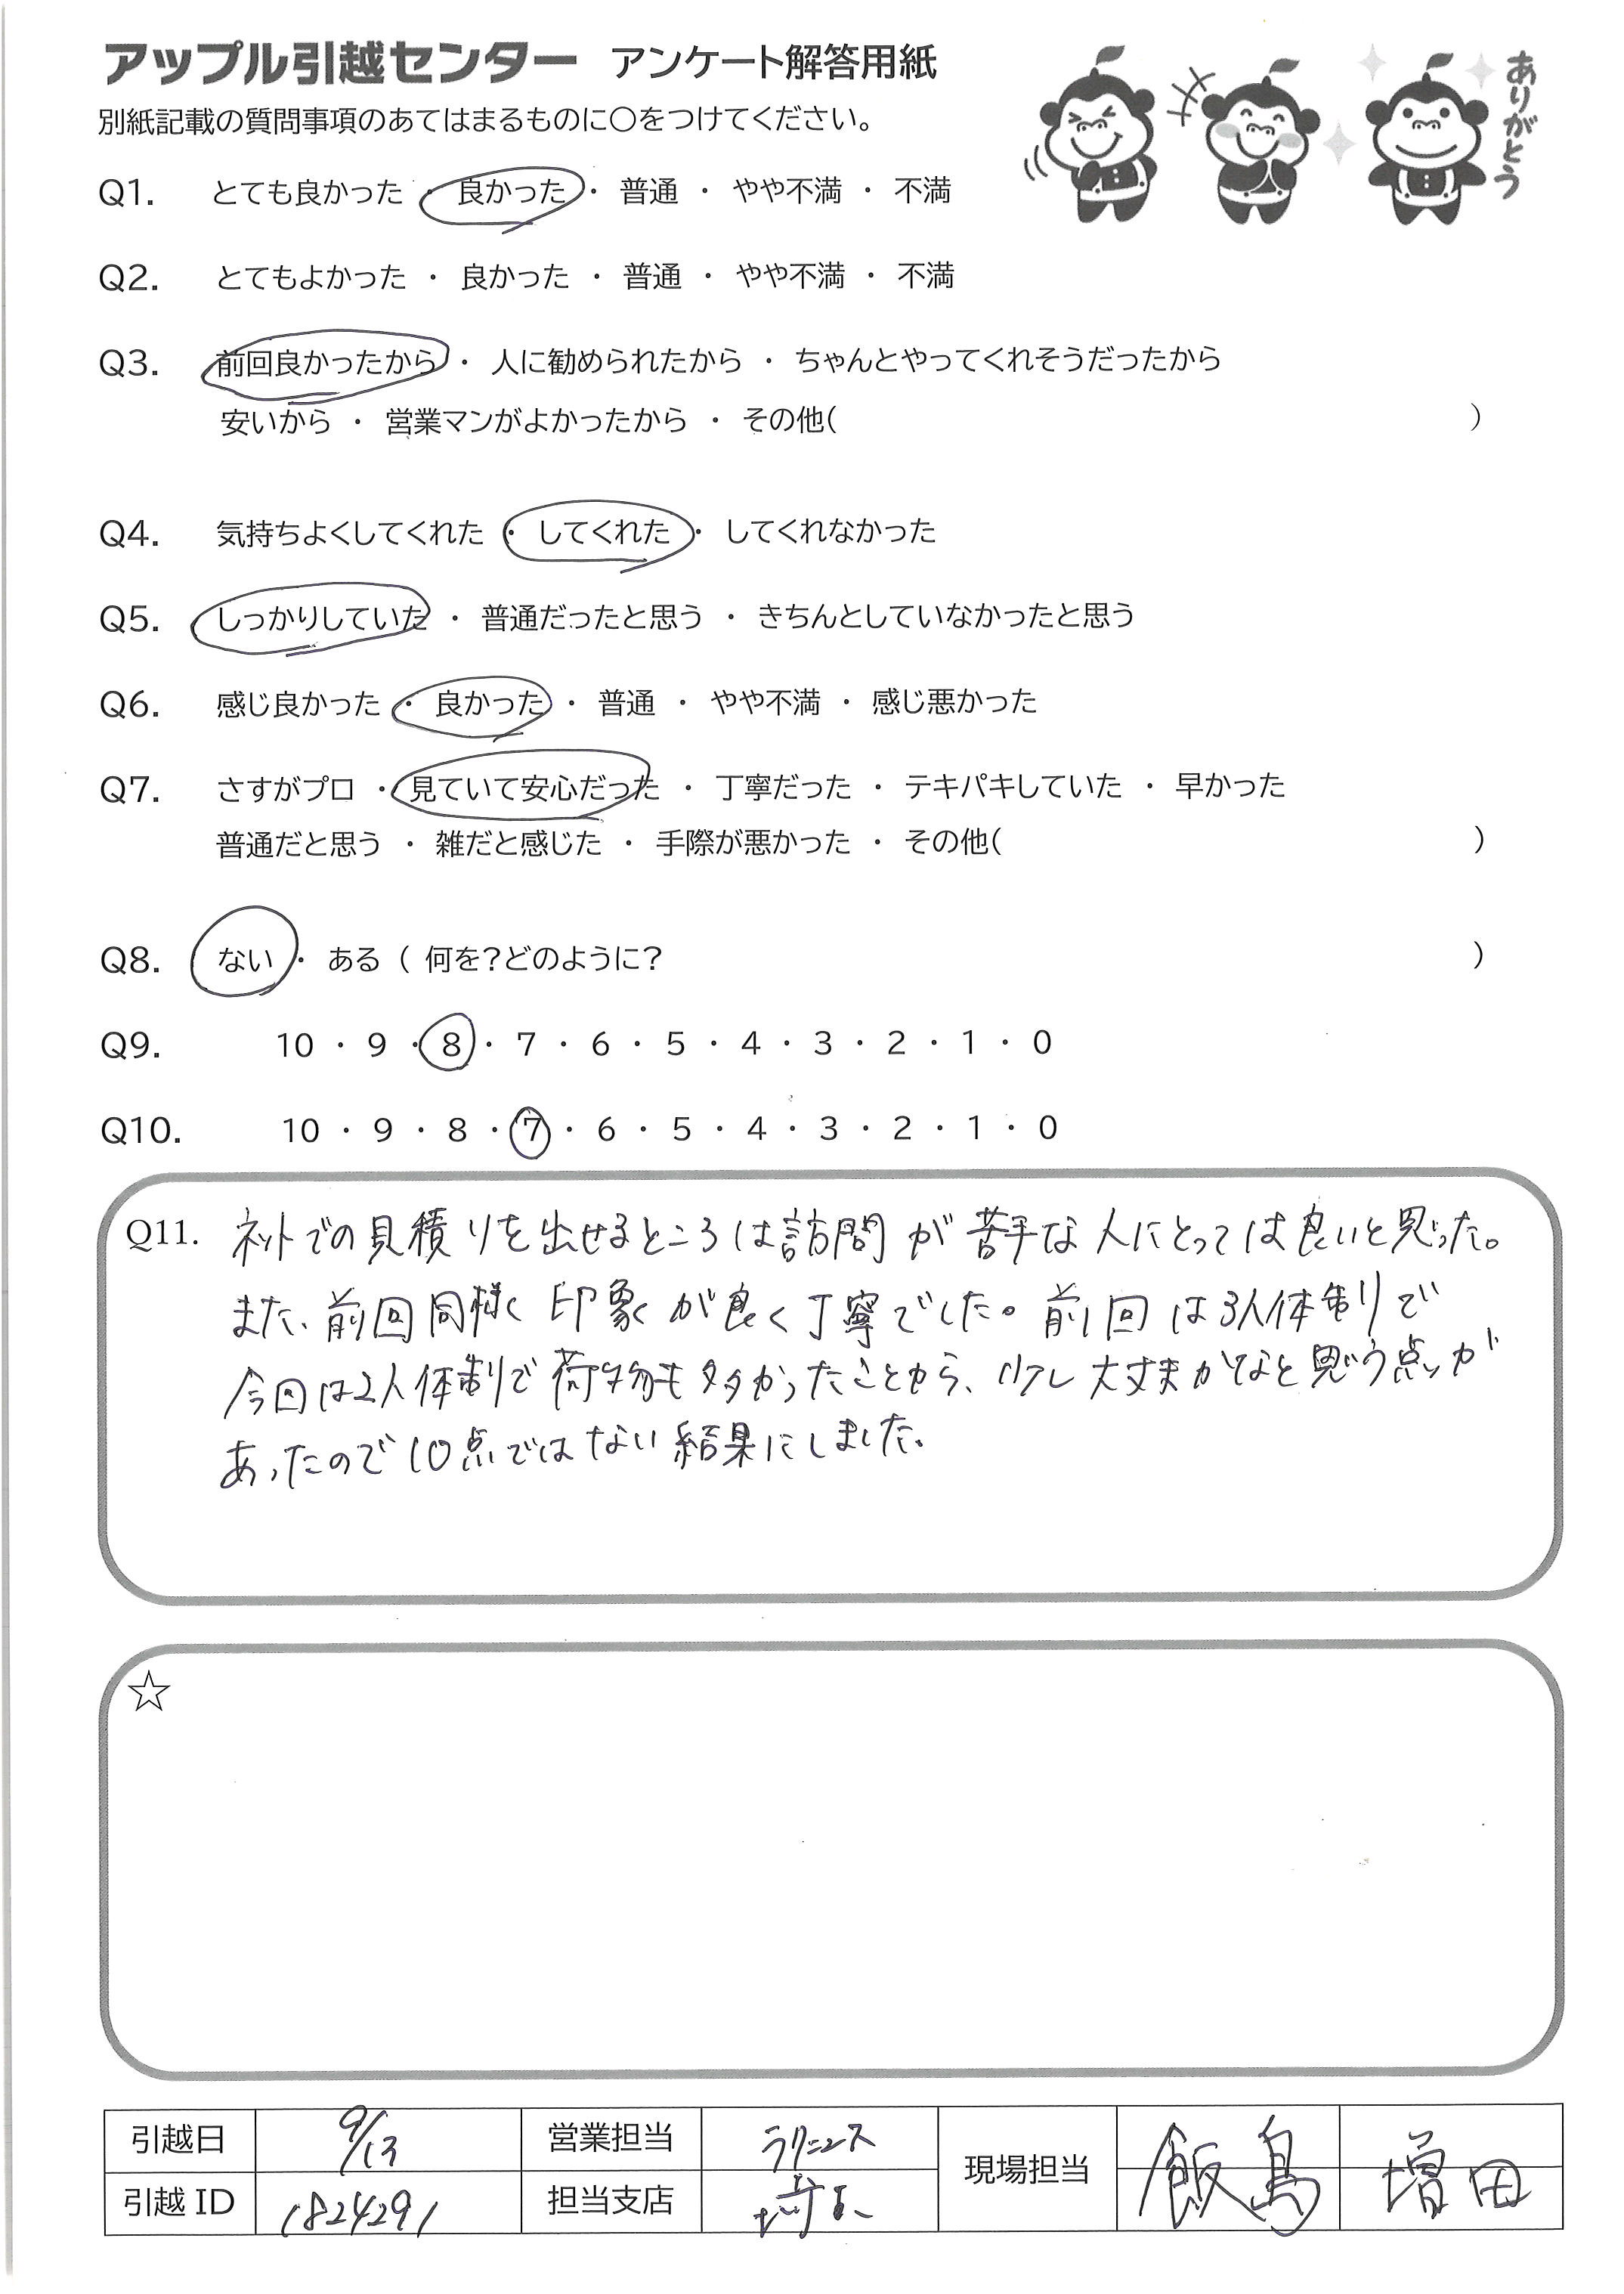 アップル引越センター アンケート解答用紙
ありがとう
別紙記載の質問事項のあてはまるものに○をつけてください。
Q1. とても良かった ・ 良かった ・ 普通 ・ やや不満 ・ 不満
Q2. とてもよかった ・ 良かった ・ 普通 ・ やや不満 ・ 不満
Q3. 前回良かったから ・ 人に勧められたから ・ ちゃんとやってくれそうだったから
安いから ・ 営業マンがよかったから ・ その他( )
Q4. 気持ちよくしてくれた ・ してくれた ・ してくれなかった
Q5. しっかりしていた ・ 普通だったと思う ・ きちんとしていなかったと思う
Q6. 感じ良かった ・ 良かった ・ 普通 ・ やや不満 ・ 感じ悪かった
Q7. さすがプロ ・ 見ていて安心だった ・ 丁寧だった ・ テキパキしていた ・ 早かった
普通だと思う ・ 雑だと感じた ・ 手際が悪かった ・ その他( )
Q8. ない ・ ある ( 何を?どのように? )
Q9. 10 ・ 9 ・ 8 ・ 7 ・ 6 ・ 5 ・ 4 ・ 3 ・ 2 ・ 1 ・ 0
Q10. 10 ・ 9 ・ 8 ・ 7 ・ 6 ・ 5 ・ 4 ・ 3 ・ 2 ・ 1 ・ 0
Q11. ネットでの見積りを出せるところは訪問が苦手な人にとっては良いと思った。
また、前回同様 印象が良く丁寧でした。前回は3人体制りで
今回は2人体制りで荷物も多かったことから、少し大丈夫かなと思う点が
あったので10点ではない結果にしました。
☆
引越日 9/13 営業担当 現場担当 飯島 増田
引越 ID 1824291 担当支店 埼玉